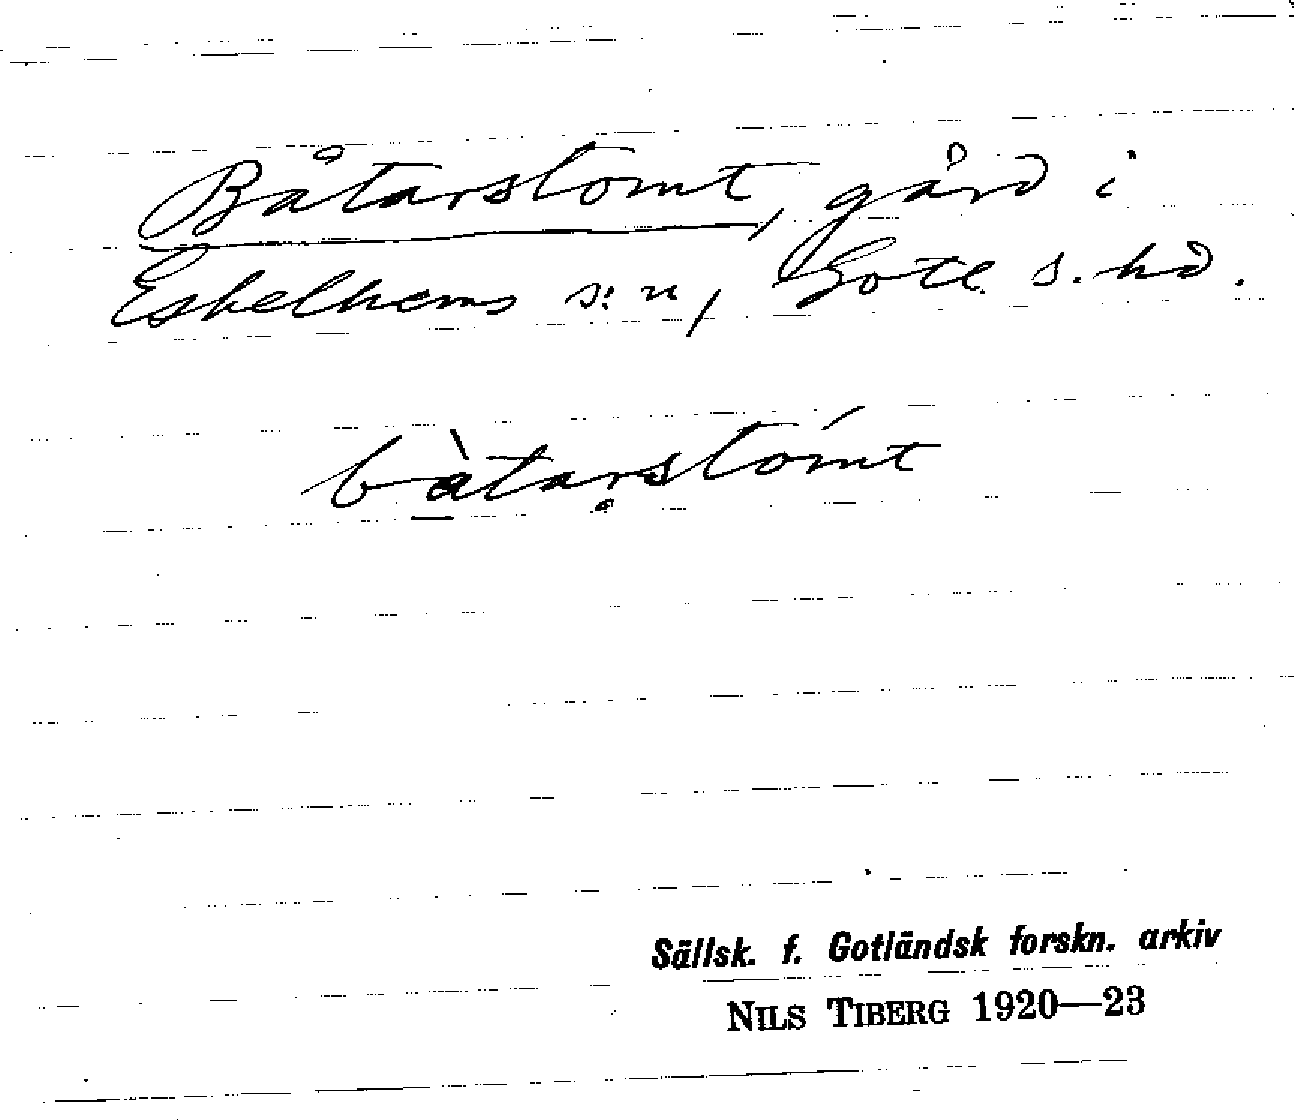 Båtarstomt, gård i
Eskelhems s:n, Gotl. s. hd.
bàtarstómt
Sällsk. f. Gotländsk forskn. arkiv
NILS TIBERG 1920—23